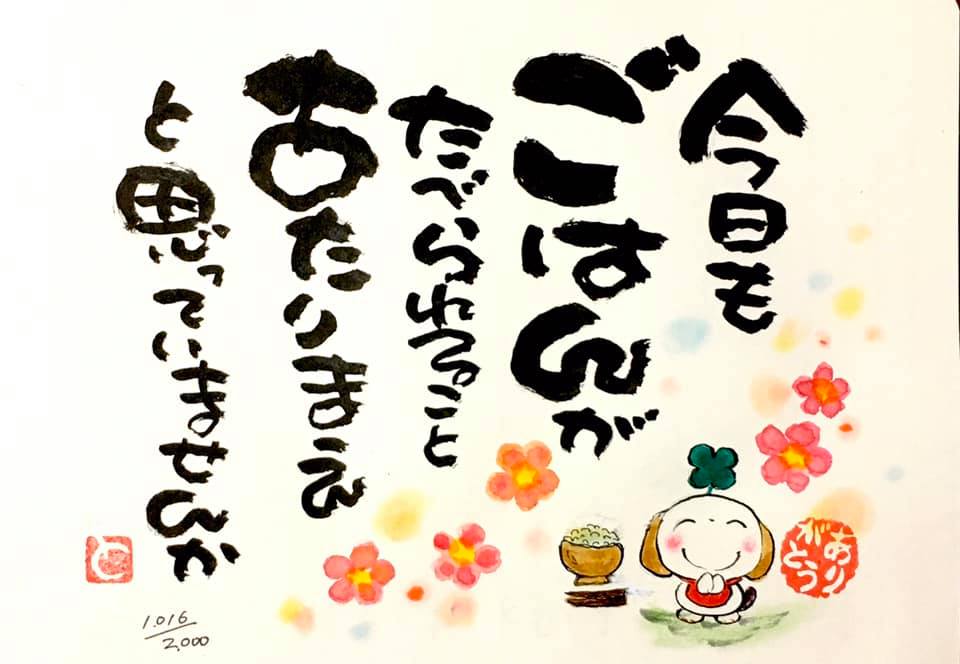 今日も
ごはんが
たべられること
あたりまえ
と思っていませんか
ありがとう
と
1.016
2,000